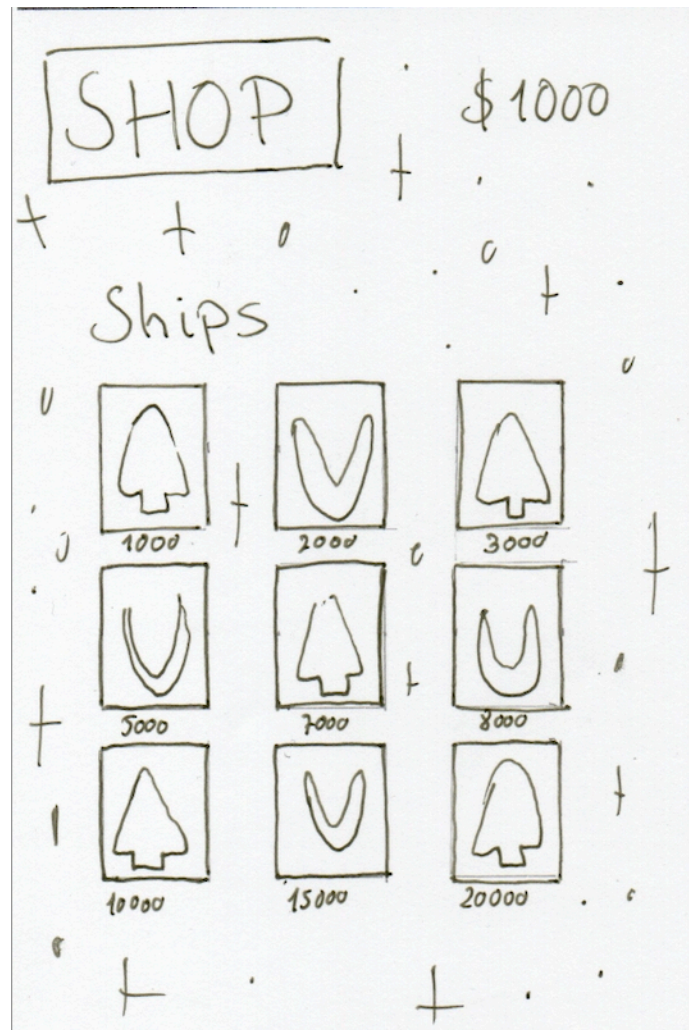 SHOP $1000
Ships
1000 2000 3000
5000 7000 8000
10000 15000 20000